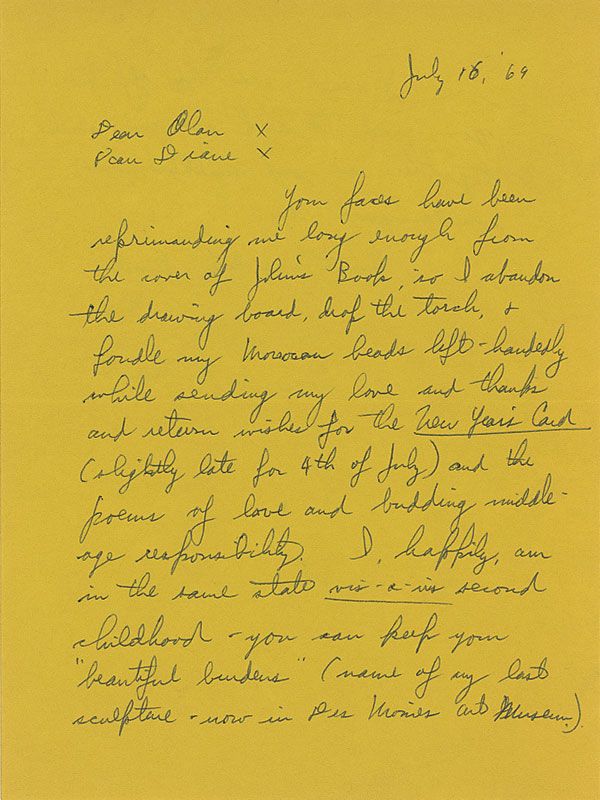 July 16, '69
Dear Alan x
Dear Diane x
Your faces have been
reprimanding me long enough from
the cover of John's Book, so I abandon
the drawing board, drop the torch, &
fondle my Moroccan beads left-handedly
while sending my love and thanks
and return wishes for the New Year's Card
(slightly late for 4th of July) and the
poems of love and budding middle-
age responsibility. I, happily, am
in the same state vis-a-vis second
childhood - you can keep your
"beautiful burdens" (name of my last
sculpture - now in Des Moines Art Museum.)